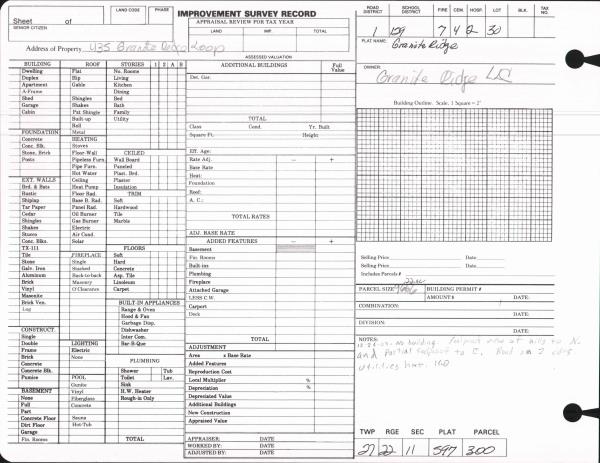 LAND CODE PHASE
Sheet of
SENIOR CITIZEN
IMPROVEMENT SURVEY RECORD
APPRAISAL REVIEW FOR TAX YEAR
LAND IMP. TOTAL
ASSESSED VALUATION
Address of Property 435 Granite Loop
ROAD DISTRICT SCHOOL DISTRICT FIRE CEM. HOSP. LOT BLK. TAX NO.
1 129 7 4 2 30
PLAT NAME:
Granite Ridge
OWNER:
Granite Ridge LLC
Building Outline. Scale, 1 Square = 2'
BUILDING
Dwelling
Duplex
Apartment
A-Frame
Shed
Garage
Cabin
FOUNDATION
Concrete
Conc. Blk.
Stone, Brick
Posts
EXT. WALLS
Brd. & Bats
Rustic
Shiplap
Tar Paper
Cedar
Shingles
Shakes
Stucco
Conc. Blks.
TX-111
Tile
Stone
Galv. Iron
Aluminum
Brick
Vinyl
Masonite
Brick Ven.
Log
CONSTRUCT.
Single
Double
Frame
Brick
Concrete
Concrete Blk.
Pumice
BASEMENT
None
Full
Part
Concrete Floor
Dirt Floor
Garage
Fin. Rooms
ROOF
Flat
Hip
Gable
Shingles
Shakes
Pat. Shingle
Built-up
Roll
Metal
HEATING
Stoves
Floor-Wall
Pipeless Furn.
Pipe Furn.
Hot Water
Ceiling
Heat Pump
Floor Rad.
Base B. Rad.
Panel Rad.
Oil Burner
Gas Burner
Electric
Air Cond.
Solar
FIREPLACE
Single
Stacked
Back-to-back
Masonry
O'Clearance
LIGHTING
Electric
None
POOL
Gunite
Vinyl
Fiberglass
Concrete
Sauna
Hot-Tub
STORIES 1 2 A B
No. Rooms
Living
Kitchen
Dining
Bed
Bath
Family
Utility
CEILED
Wall Board
Paneled
Plast. Brd.
Plaster
Insulation
TRIM
Soft
Hardwood
Tile
Marble
FLOORS
Soft
Hard
Concrete
Asp. Tile
Linoleum
Carpet
BUILT-IN APPLIANCES
Range & Oven
Hood & Fan
Garbage Disp.
Dishwasher
Inter Com.
Bar-B-Que
PLUMBING
Shower Tub
Toilet Lav.
Sink
H.W. Heater
Rough-in Only
TOTAL
ADDITIONAL BUILDINGS Full Value
Det. Gar.
TOTAL
Class Cond. Yr. Built
Square Ft. Height
Eff. Age:
Rate Adj. − +
Base Rate
Heat:
Foundation
Roof:
A. C.:
TOTAL RATES
ADJ. BASE RATE
ADDED FEATURES − +
Basement
Fin. Rooms
Built-ins
Plumbing
Fireplace
Attached Garage
LESS C.W.
Carport
Deck
TOTAL
ADJUSTMENT
Area x Base Rate
Added Features
Reproduction Cost
Local Multiplier %
Depreciation %
Depreciated Value
Additional Buildings
New Construction
Appraised Value
APPRAISER: DATE
WORKED BY: DATE
ADJUSTED BY: DATE
Selling Price Date
Selling Price Date
Includes Parcels #
PARCEL SIZE
BUILDING PERMIT #
AMOUNT $ DATE:
COMBINATION: DATE:
DIVISION: DATE:
NOTES:
No building
and Partial to E.
utilities
TWP RGE SEC PLAT PARCEL
22 11 597 300